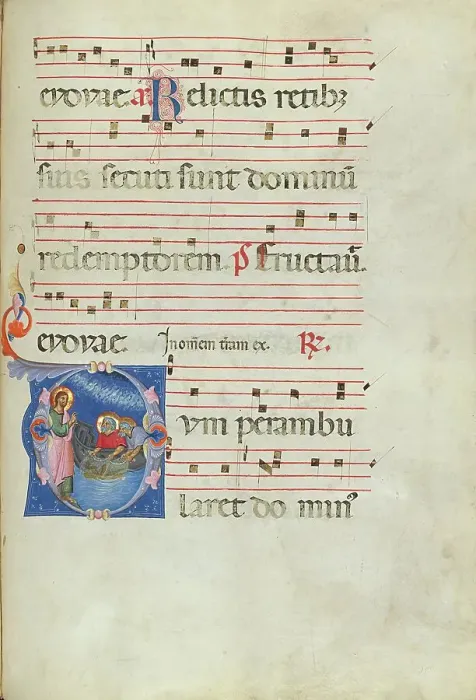 evovae. a Relictis retibꝫ
suis secuti sunt dominū
redemptorem. p̄s Eructaū.
evovae. In omēm t̄ram ex. R̷.
Dvm perambu
laret do minꝰ